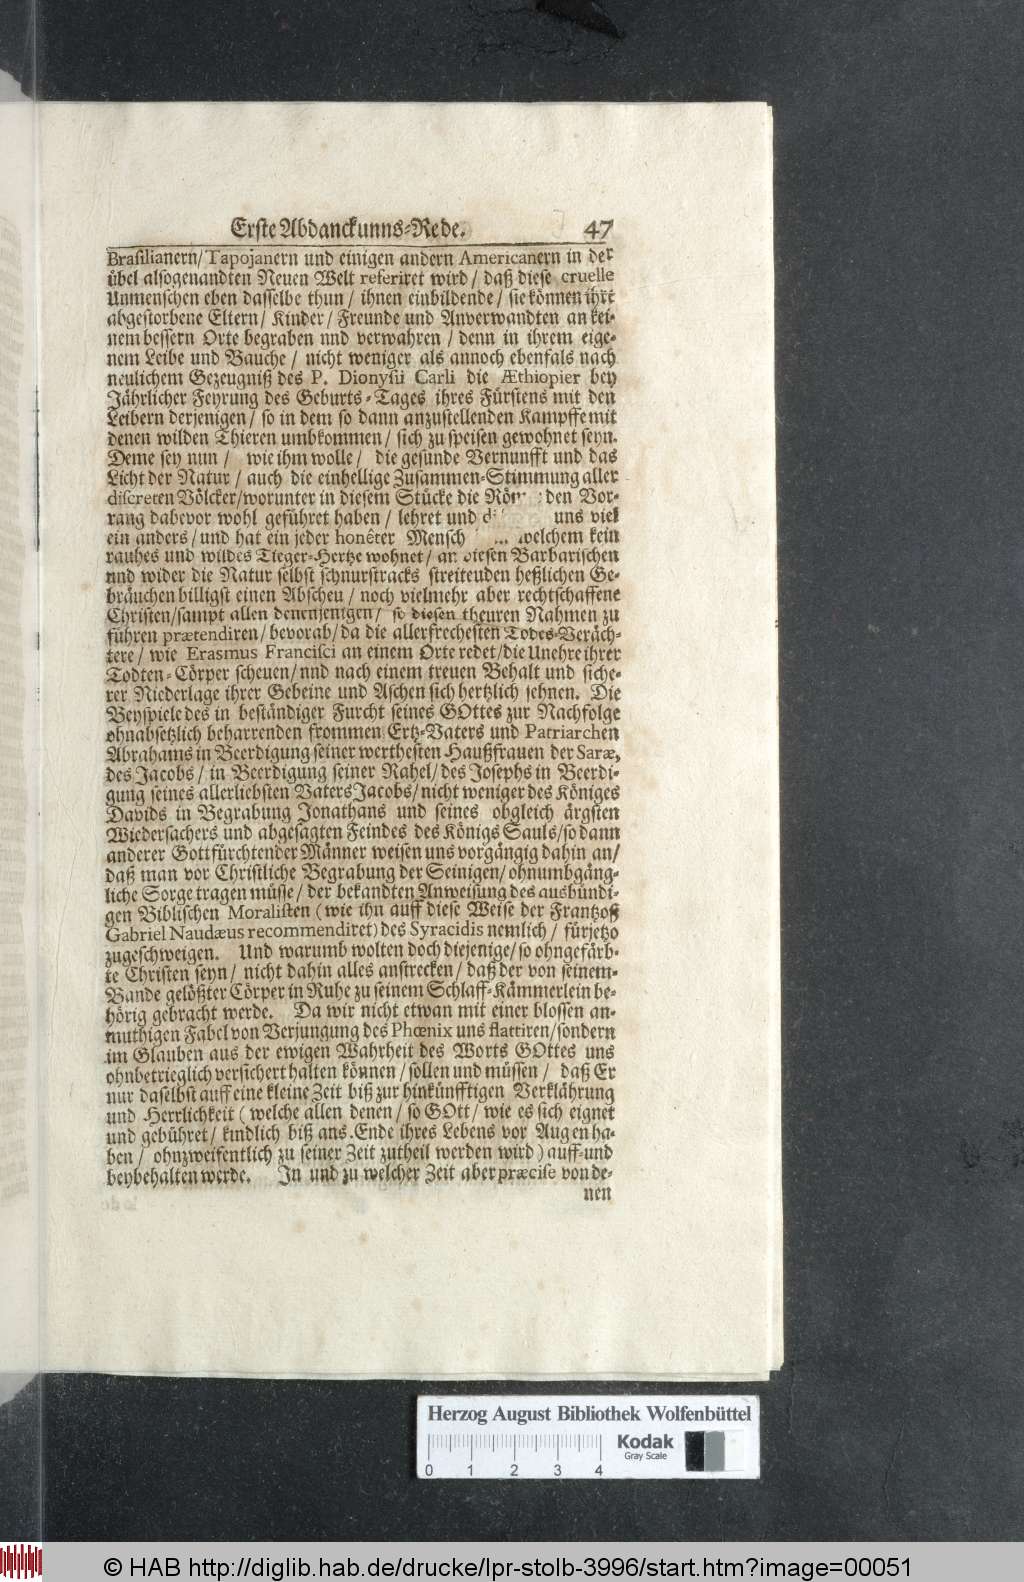 Erste Abdanckunns-Rede. 47
Brasilianern/ Tapojanern und einigen andern Americanern in der
übel alsogenandten Neuen Welt referiret wird / daß diese cruelle
Unmenschen eben dasselbe thun / ihnen einbildende / sie können ihre
abgestorbene Eltern/ Kinder/ Freunde und Anverwandten an kei-
nem bessern Orte begraben nnd verwahren / denn in ihrem eige-
nem Leibe und Bauche / nicht weniger als annoch ebenfals nach
neulichem Gezeugniß des P. Dionysii Carli die Æthiopier bey
Jährlicher Feyrung des Geburts-Tages ihres Fürstens mit den
Leibern derjenigen / so in dem so dann anzustellenden Kampffe mit
denen wilden Thieren umbkommen / sich zu speisen gewohnet seyn.
Deme sey nun / wie ihm wolle / die gesunde Vernunfft und das
Licht der Natur / auch die einhellige Zusammen-Stimmung aller
discreten Völcker/worunter in diesem Stücke die den Vor-
rang dabevor wohl geführet haben / lehret und uns viel
ein anders/ und hat ein jeder honêter Mensch welchem kein
rauhes und wildes Tieger-Hertze wohnet / an diesen Barbarischen
nnd wider die Natur selbst schnurstracks streitenden heßlichen Ge-
bräuchen billigst einen Abscheu / noch vielmehr aber rechtschaffene
Christen/sampt allen denenjenigen/ so diesen theuren Nahmen zu
führen prætendiren/ bevorab/ da die allerfrechesten Todes-Veräch-
tere / wie Erasmus Francisci an einem Orte redet/die Unehre ihrer
Todten-Cörper scheuen/ nnd nach einem treuen Behalt und siche-
rer Niederlage ihrer Gebeine und Aschen sich hertzlich sehnen. Die
Beyspiele des in beständiger Furcht seines GOttes zur Nachfolge
ohnabsetzlich beharrenden frommen Ertz-Vaters und Patriarchen
Abrahams in Beerdigung seiner werthesten Haußfrauen der Saræ,
des Jacobs / in Beerdigung seiner Rahel/ des Josephs in Beerdi-
gung seines allerliebsten Vaters Jacobs/ nicht weniger des Königes
Davids in Begrabung Jonathans und seines obgleich ärgsten
Wiedersachers und abgesagten Feindes des Königs Sauls/ so dann
anderer Gottfürchtender Männer weisen uns vorgängig dahin an/
daß man vor Christliche Begrabung der Seinigen/ ohnumbgäng-
liche Sorge tragen müsse / der bekandten Anweisung des ausbündi-
gen Biblischen Moralisten (wie ihn auff diese Weise der Frantzoß
Gabriel Naudæus recommendiret) des Syracidis nemlich / fürjetzo
zugeschweigen. Und warumb wolten doch diejenige/ so ohngefärb-
te Christen seyn / nicht dahin alles anstrecken / daß der von seinem
Bande gelößter Cörper in Ruhe zu seinem Schlaff-Kämmerlein be-
hörig gebracht werde. Da wir nicht etwan mit einer blossen an-
muthigen Fabel von Verjungung des Phœnix uns flattiren/sondern
im Glauben aus der ewigen Wahrheit des Worts GOttes uns
ohnbetrieglich versichert halten können / sollen und müssen / daß Er
nur daselbst auff eine kleine Zeit biß zur hinkünfftigen Verklährung
und Herrlichkeit (welche allen denen / so GOtt / wie es sich eignet
und gebühret / kindlich biß ans Ende ihres Lebens vor Augen ha-
ben / ohnzweifentlich zu seiner Zeit zutheil werden wird) auff-und
beybehalten werde. In und zu welcher Zeit aber præcise von de-
nen
Herzog August Bibliothek Wolfenbüttel
Kodak
Gray Scale
0 1 2 3 4
© HAB http://diglib.hab.de/drucke/lpr-stolb-3996/start.htm?image=00051